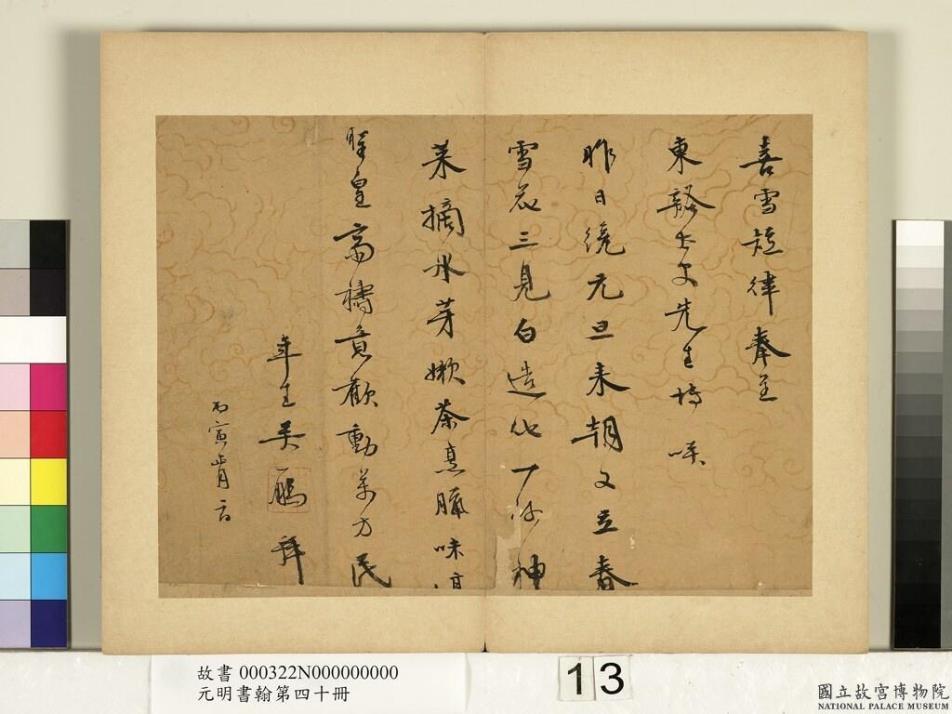 喜雪短律奉呈
東谿丈先生博咲
昨日元旦来朝又立春
雪花三見白造化神
菜摘氷芽嫩茶烹臘味
皇禱歡動萬方民
年生吳鵬拜
丙寅月
故書 000322N000000000
元明書翰第四十冊
13
國立故宮博物院
NATIONAL PALACE MUSEUM